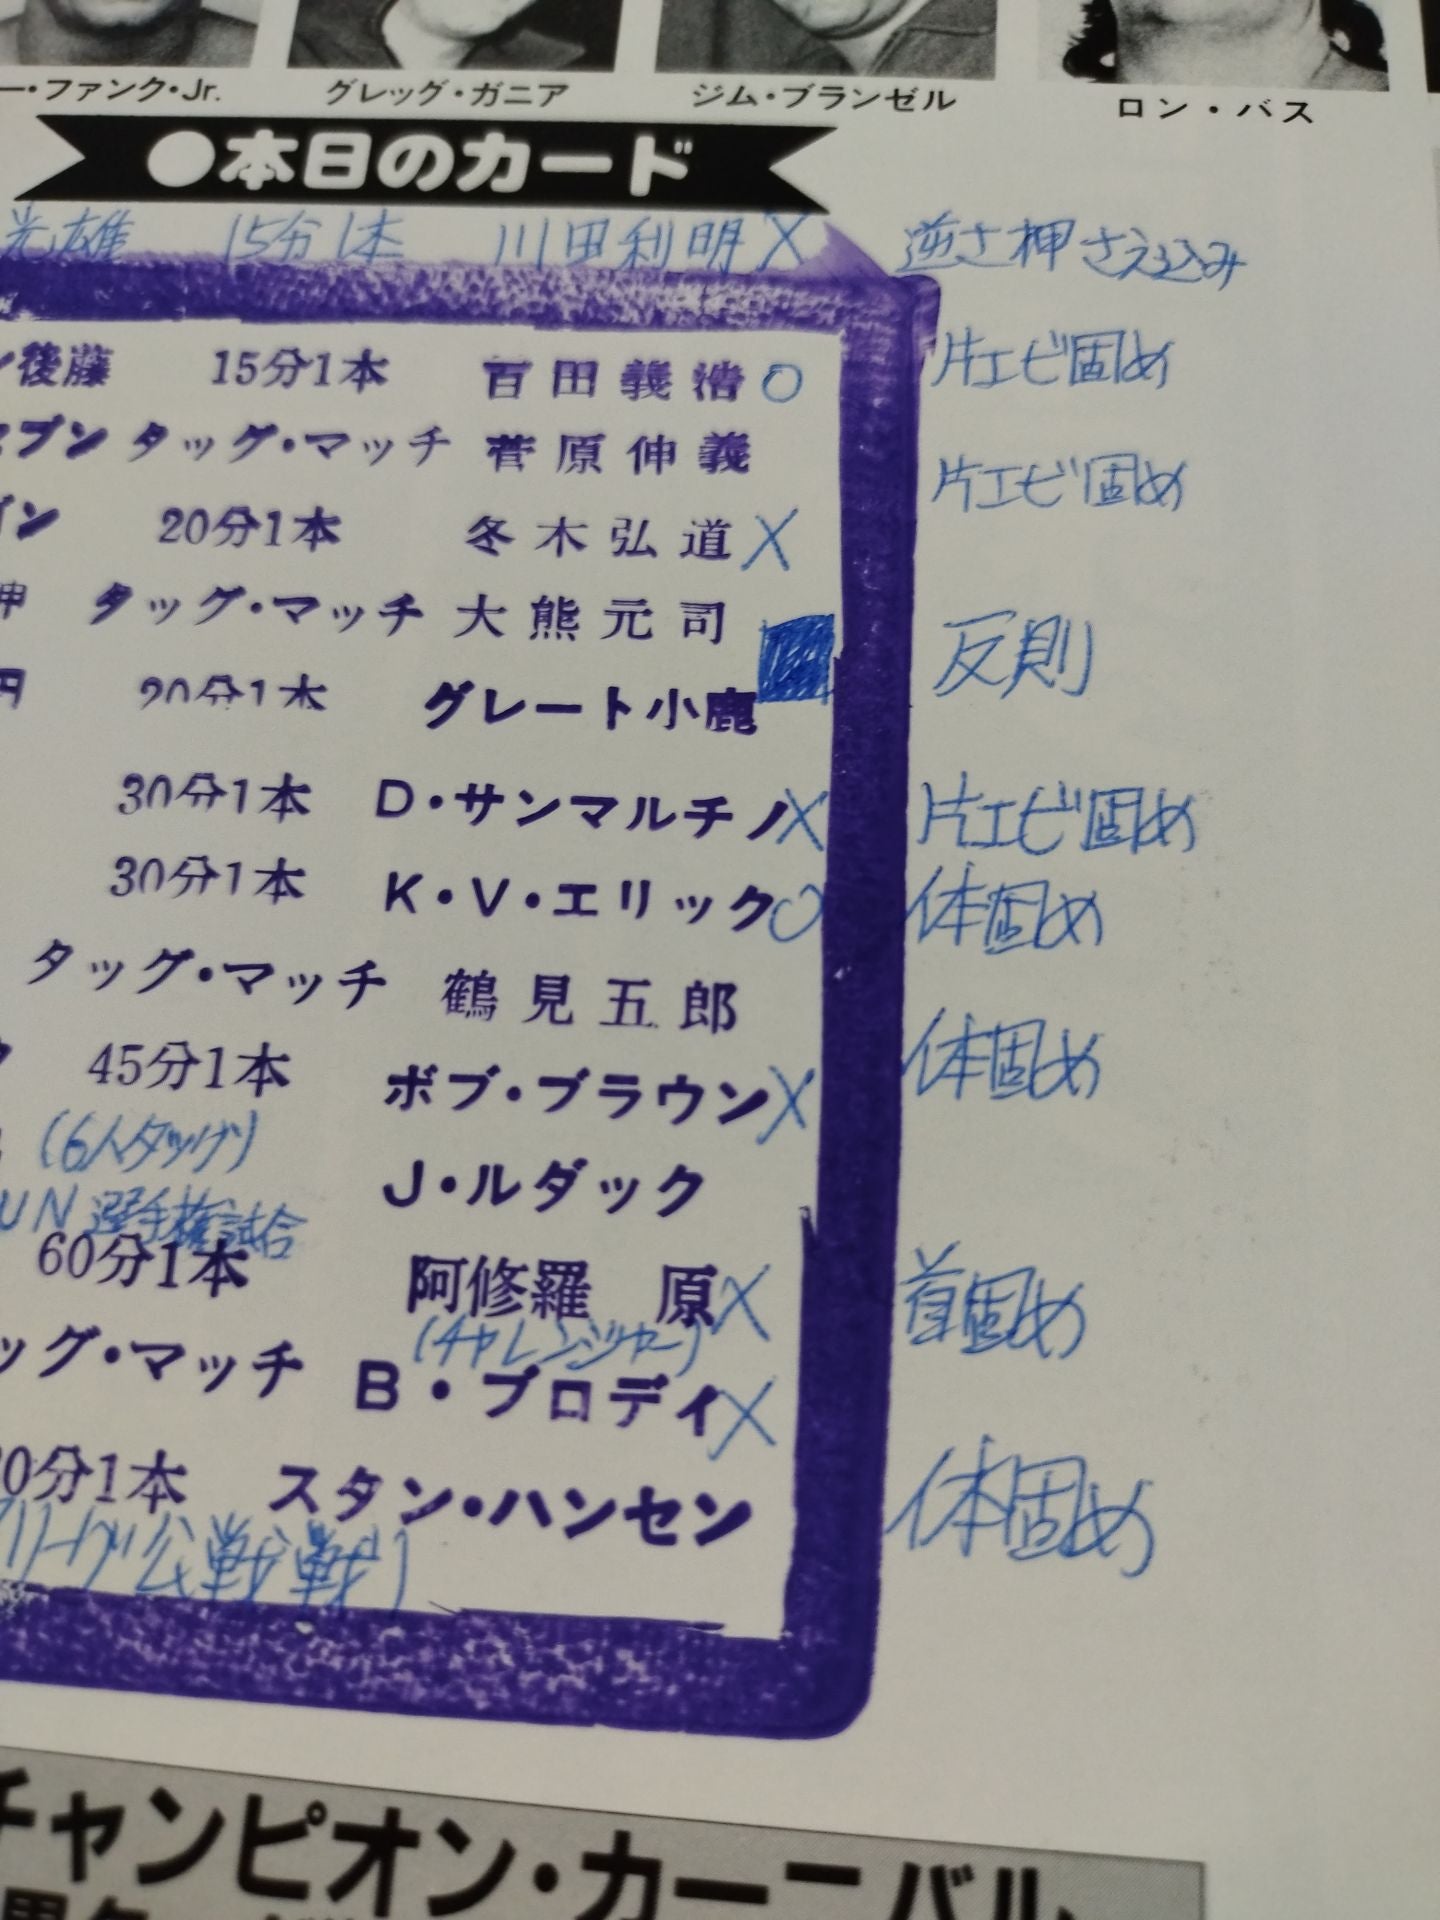 ー・ファンク・Jr. グレッグ・ガニア ジム・ブランゼル ロン・バス
●本日のカード
光雄 15分1本 川田利明× 逆さ押さえ込み
ン後藤 15分1本 百田義浩○ 片エビ固め
セブン タッグ・マッチ 菅原伸義
ゴン 20分1本 冬木弘道× 片エビ固め
神 タッグ・マッチ 大熊元司
円 20分1本 グレート小鹿 反則
30分1本 D・サンマルチノ× 片エビ固め
30分1本 K・V・エリック○ 体固め
タッグ・マッチ 鶴見五郎
ク 45分1本 ボブ・ブラウン× 体固め
(6人タッグ) J・ルダック
UN選手権試合
60分1本 阿修羅 原× 首固め
(チャレンジャー)
ッグ・マッチ B・ブロディ×
0分1本 スタン・ハンセン 体固め
リーグ公戦戦)
チャンピオン・カーニバル